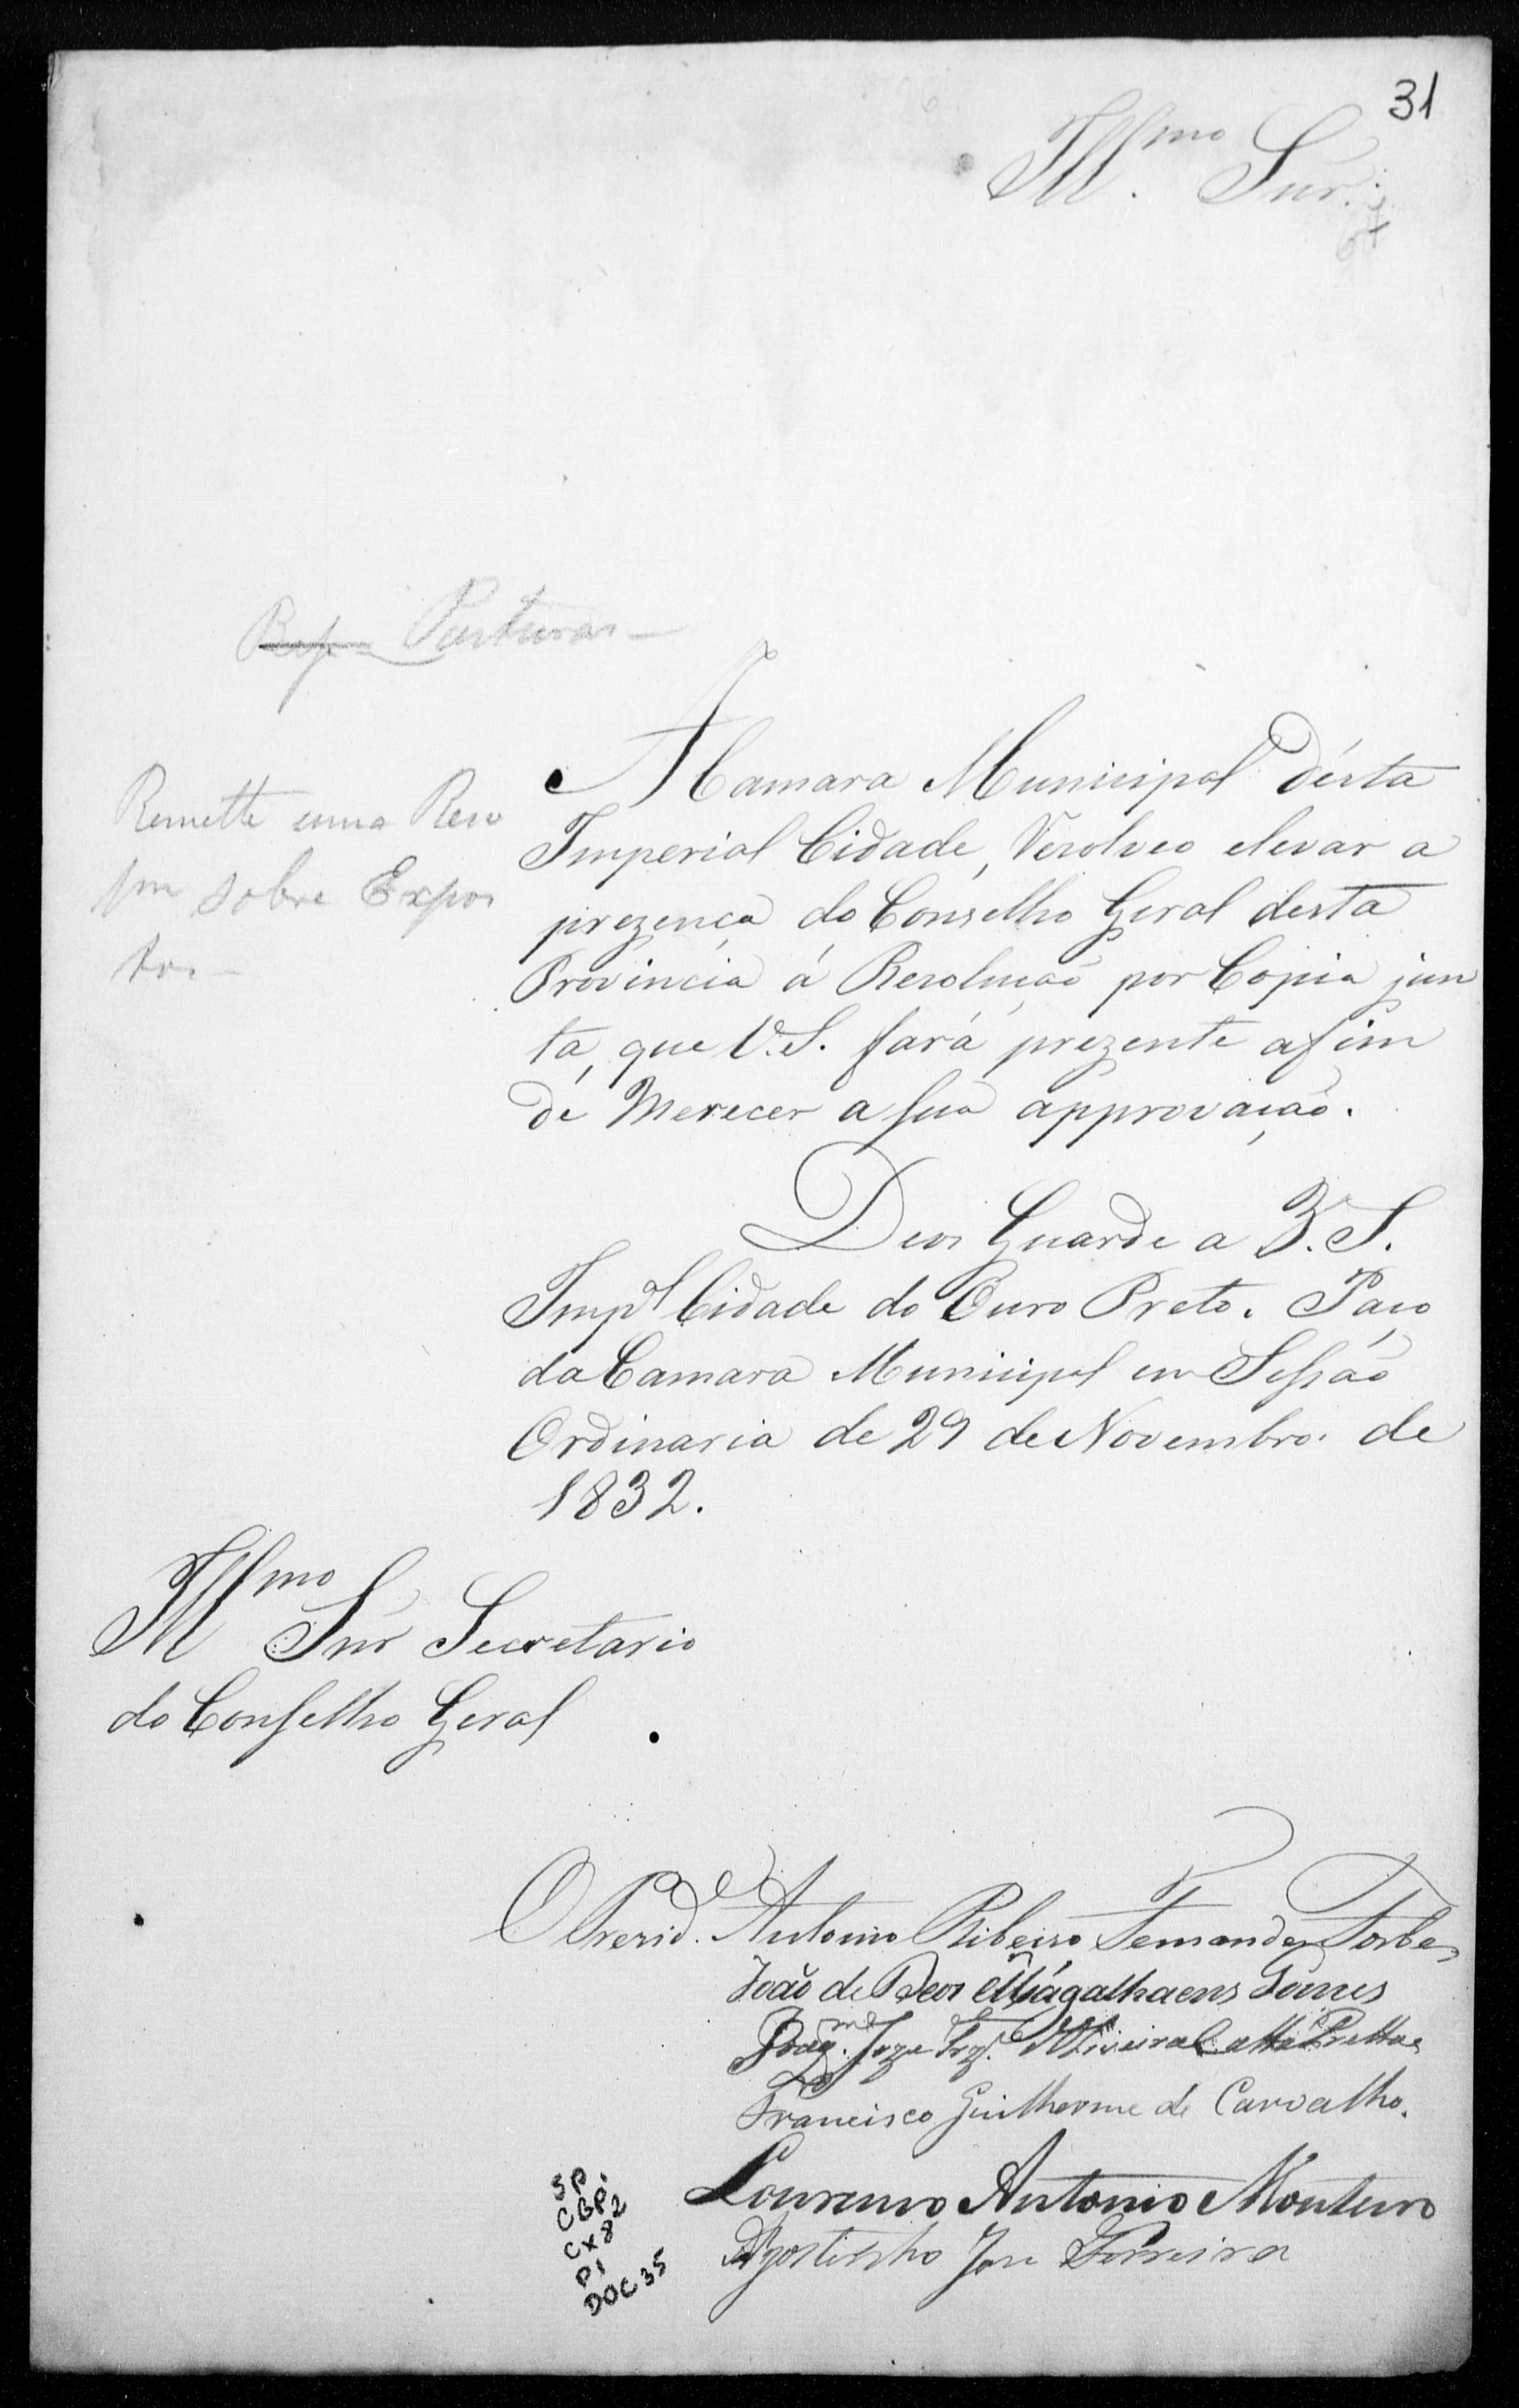 31
Ill.mo Snr.
Posturas
A Camara Municipal désta
Remette uma Reso
Imperial Cidade, Resolveo elevar a
sobre Expos
prezença do Conselho Geral desta
tos
Provincia á Resolução por Copia jun
ta, que V.S. fará prezente afim
de Merecer a sua approvação.
Deos Guarde a V.S.
Imp.l Cidade do Ouro Preto. Paço
da Camara Municipal em Sessão
Ordinaria de 29 de Novembro de
1832.
Ill.mo Snr Secretario
do Conselho Geral
O Prezid.e Antonio Ribeiro Fernandes Forbes
João de Deos Magalhaens Gomes
Francisco Guilherme de Carvalho.
Lourenço Antonio Monteiro
Agostinho Jose Ferreira
SP
CGP.
CX82
P1
DOC 35